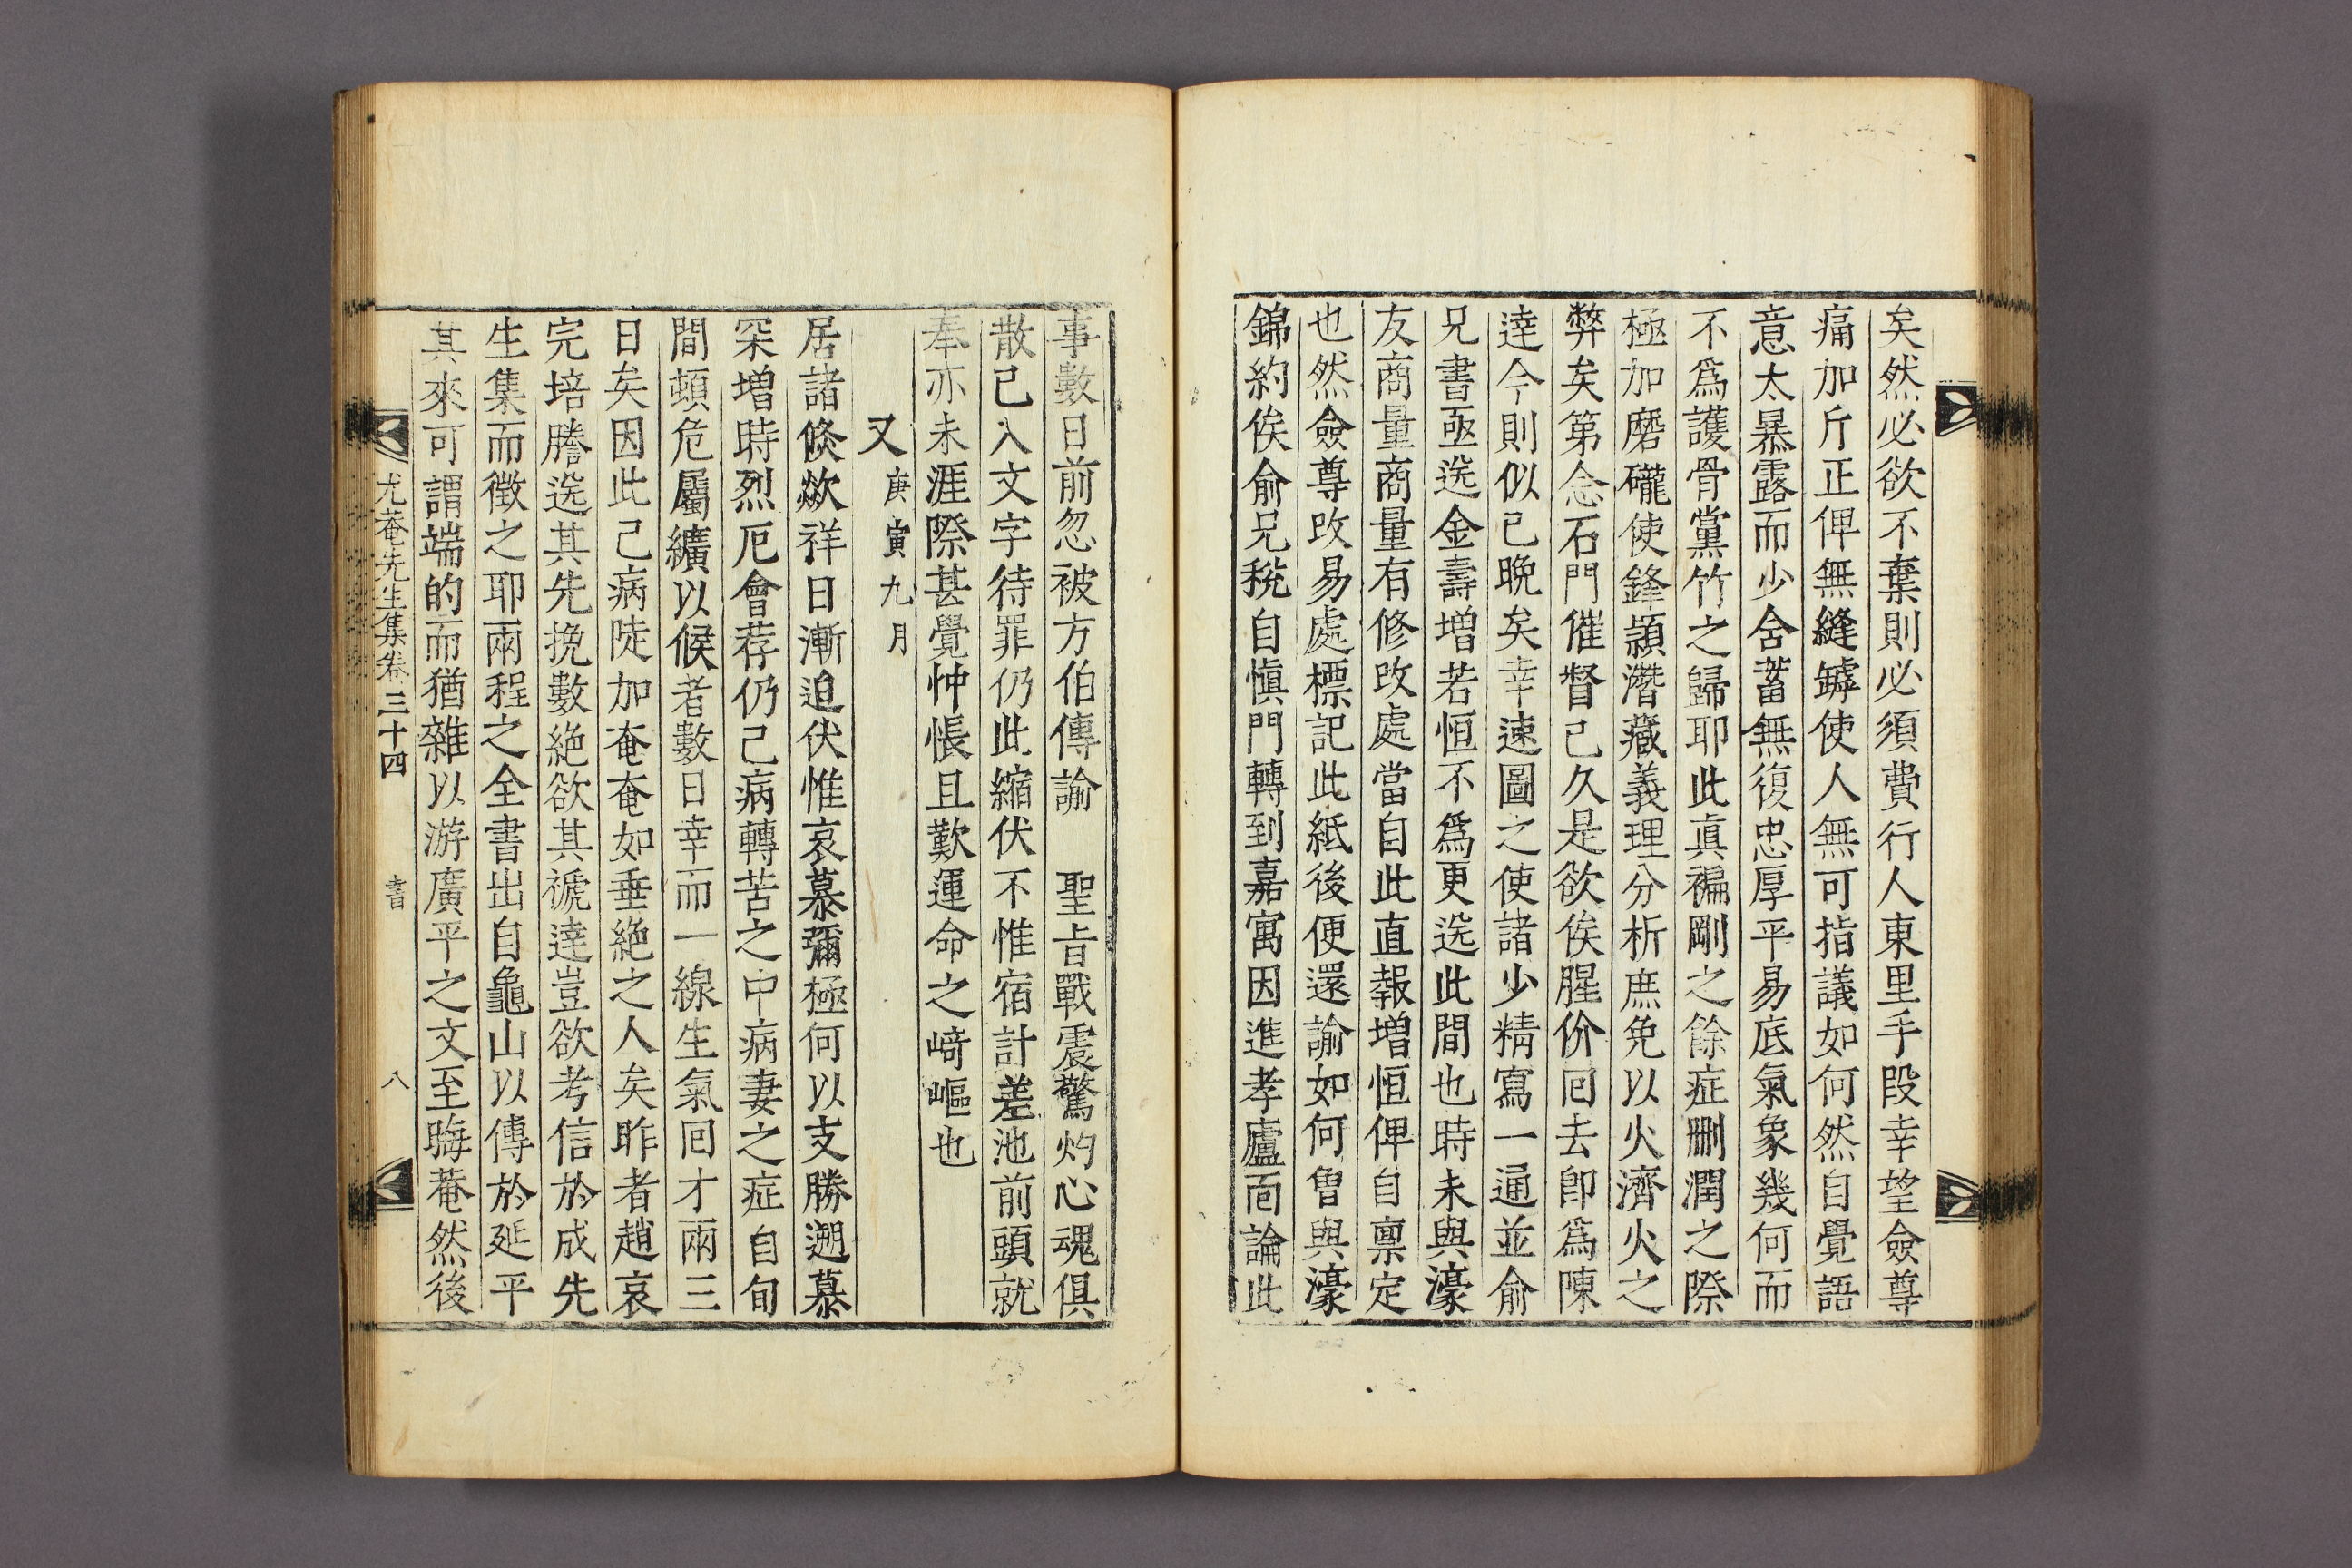 矣然必欲不棄則必須費行人東里手段幸望僉尊
痛加斤正俾無縫罅使人無可指議如何然自覺語
意太暴露而少含蓄無復忠厚平易底氣象幾何而
不爲護骨黨竹之歸耶此眞褊剛之餘症刪潤之際
極加磨礲使鋒顈潛藏義理分析庶免以火濟火之
弊矣第念石門催督已久是欲俟腥价回去卽爲陳
達今則似已晩矣幸速圖之使諸少精寫一通並俞
兄書亟送金壽增若恒不爲更送此間也時未與濠
友商量商量有修改處當自此直報增恒俾自稟定
也然僉尊改易處標記此紙後便還諭如何曾與濠
錦約俟俞兄稅自愼門轉到嘉寓因進孝廬面論此
事數日前忽被方伯傳諭 聖旨戰震驚灼心魂俱
散已入文字待罪仍此縮伏不惟宿計差池前頭就
奉亦未涯際甚覺忡悵且歎運命之崎嶇也
又 庚寅九月
居諸倏歘祥日漸迫伏惟哀慕彌極何以支勝遡慕
罙增時烈厄會荐仍己病轉苦之中病妻之症自旬
間頓危屬纊以候者數日幸而一線生氣回才兩三
日矣因此己病陡加奄奄如垂絶之人矣昨者趙哀
完培謄送其先挽數絶欲其褫達豈欲考信於成先
生集而徵之耶兩程之全書出自龜山以傳於延平
其來可謂端的而猶雜以游廣平之文至晦菴然後
尤菴先生集卷三十四 書 八